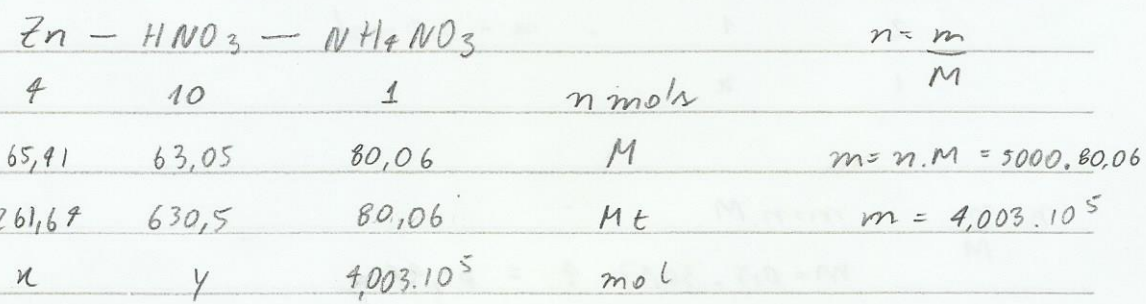 Zn - HNO3 - NH4NO3 n = m/M
4 10 1 n mols
65,41 63,05 80,06 M m = n.M = 5000.80,06
261,64 630,5 80,06 Mt m = 4,003.10^5
x y 4,003.10^5 mol